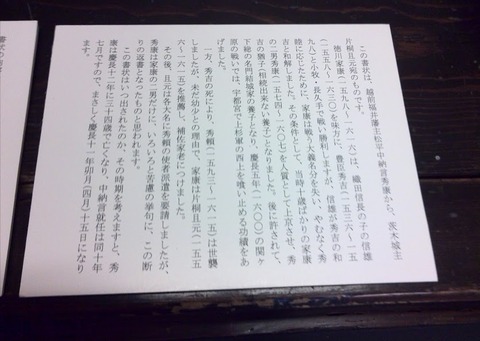 この書状は、越前福井藩主松平中納言秀康から、茨木城主
片桐且元宛のものです。
徳川家康（一五九八～一六一六）は、織田信長の子の信雄
（一五五八～一六三〇）を味方に、豊臣秀吉（一五三六～一五
九八）と小牧・長久手で戦い勝利しますが、信雄が秀吉の和
睦に応じたために、家康は戦う大義名分を失い、やむなく秀
吉と和解しました。その条件として、当時十歳ばかりの家康
の二男秀康（一五七四～一六〇七）を人質として上京させ、秀
吉の猶子（相続出来ない養子）となりました。後に許されて、
下総の名門結城家の養子となり、慶長五年（一六〇〇）の関ヶ
原の戦いでは、宇都宮で上杉軍の西上を喰い止める功績をあ
げました。
一方、秀吉の死により、秀頼（一五九三～一六一五）は世襲
しましたが、未だ幼少との理由で、家康は片桐且元（一五五
六～一六一五）を推薦し、補佐家老につけました。
その後、且元は各大名に秀頼の使者派遣を要請しましたが、
秀康は家康の二男だけに、いろいろと苦慮の挙句に、この断
りの返書となったものと思われます。
この書状はいつ出されたのか、その時期を考えますと、秀
康は慶長十二年に三十四歳で亡くなり、中納言就任は同十年
七月ですので、まさしく慶長十一年卯月（四月）十五日になり
ます。